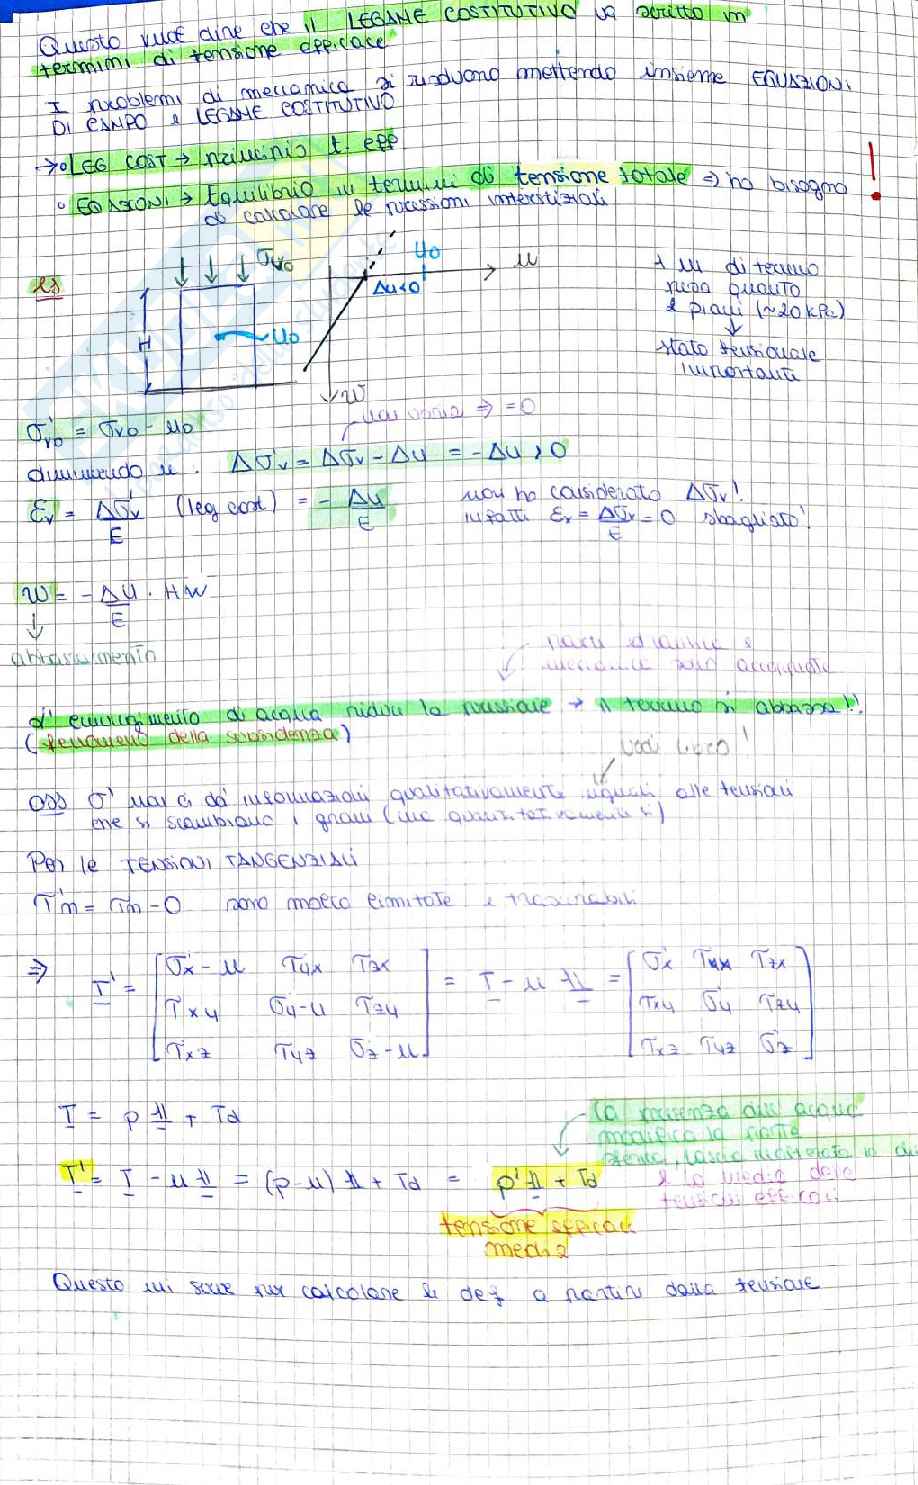 Questo vuol dire che il LEGAME COSTITUTIVO va scritto in
termini di tensione efficace
I problemi di meccanica si risolvono mettendo insieme EQUAZIONI
DI CAMPO e LEGAME COSTITUTIVO
→ LEG COST → principio t. eff
EQUAZIONI → Equilibrio in termini di tensione totale ⇒ ho bisogno !
di calcolare le pressioni interstiziali
es
σv0
H
u0
u0
u
Δu<0
w
1 m di terreno
pesa quanto
2 piani (~20 kPa)
↓
stato tensionale
importante
σ'v0 = σv0 - u0
non varia ⇒ = 0
diminuendo u . Δσ'v = Δσv - Δu = -Δu > 0
εv = Δσ'v/E (leg cost) = -Δu/E
non ho considerato Δσv!
infatti εv = Δσv/E = 0 sbagliato!
w = -Δu/E · H
↓
abbassamento
l'emungimento di acqua riduce la pressione → il terreno si abbassa!!
(fenomeni della subsidenza)
vedi libro!
oss σ' non ci dà informazioni qualitativamente uguali alle tensioni
che si scambiano i grani (ma quantitativamente sì)
Per le TENSIONI TANGENZIALI
τ'n = τn - 0 sono molto limitate e trascurabili
⇒ T' = [σx - u τyx τzx
τxy σy - u τzy
τxz τyz σz - u] = T - u 1 = [σ'x τyx τzx
τxy σ'y τzy
τxz τyz σ'z]
T = p 1 + Td
la presenza dell'acqua
modifica la parte
T' = T - u 1 = (p - u) 1 + Td = p' 1 + Td
è la media delle
tensioni efficaci
tensione efficace
media
Questo mi serve per calcolare le def a partire dalla tensione